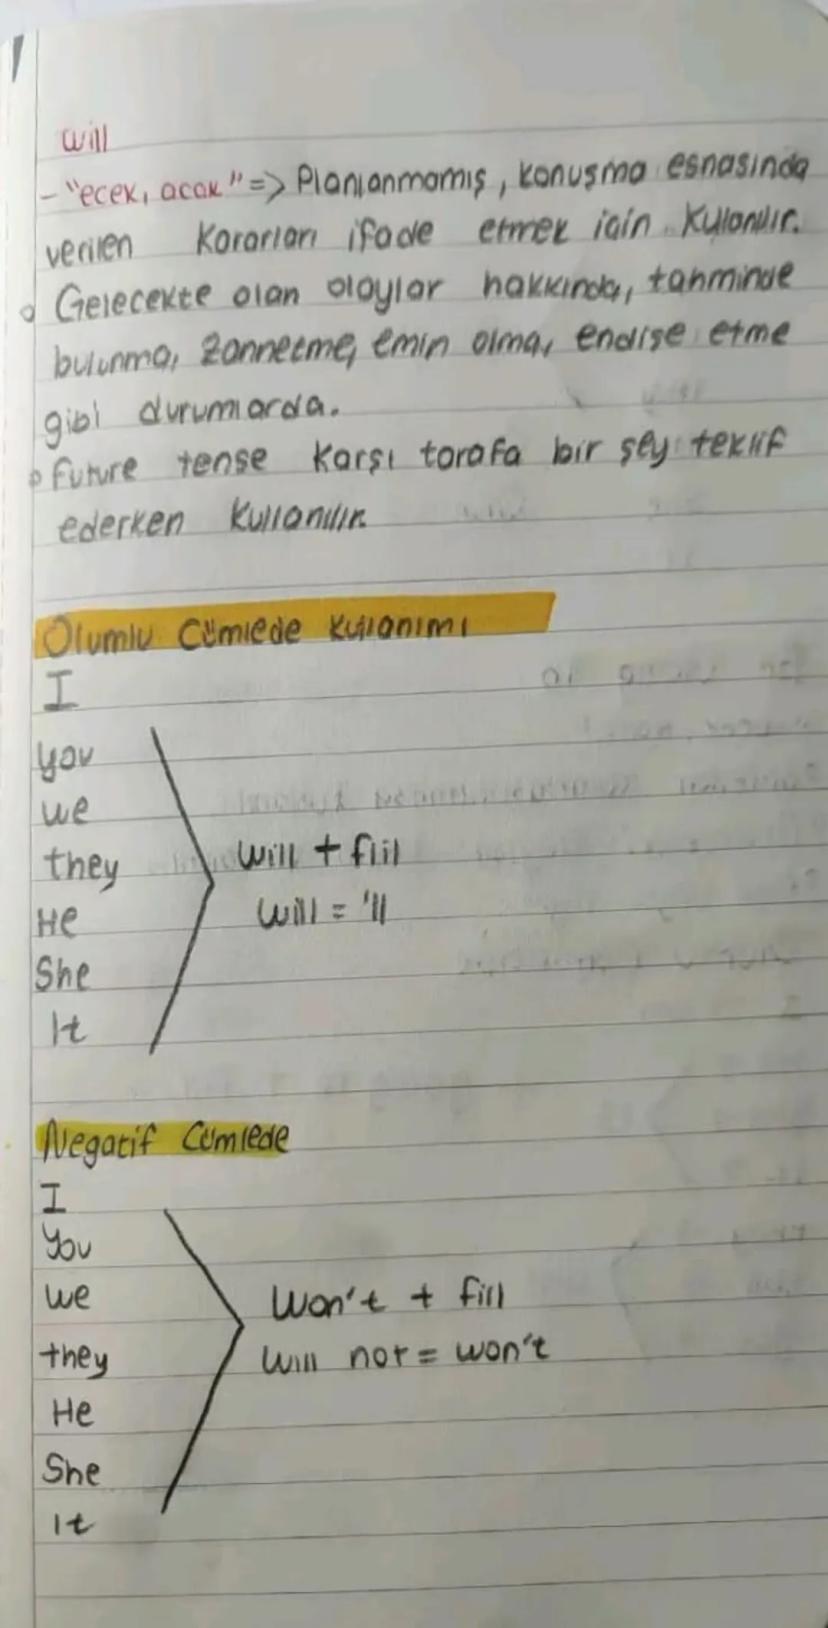 will
- "ecek, acak" => Planlanmamış, konuşma esnasında
verilen kararları ifade etmek için kullanılır.
Gelecekte olan olaylar hakkında, tahminde
bulunma, zannetme, emin olma, endişe etme
gibi durumlarda.
Future tense karşı tarafa bir şey teklif
ederken kullanılır.
Olumlu Cümlede Kullanımı
I
you
we
they
He
She
It
will + fiil
will = 'll
Negatif Cümlede
I
You
we
they
He
She
It
Won't + fiil
Will not = won't